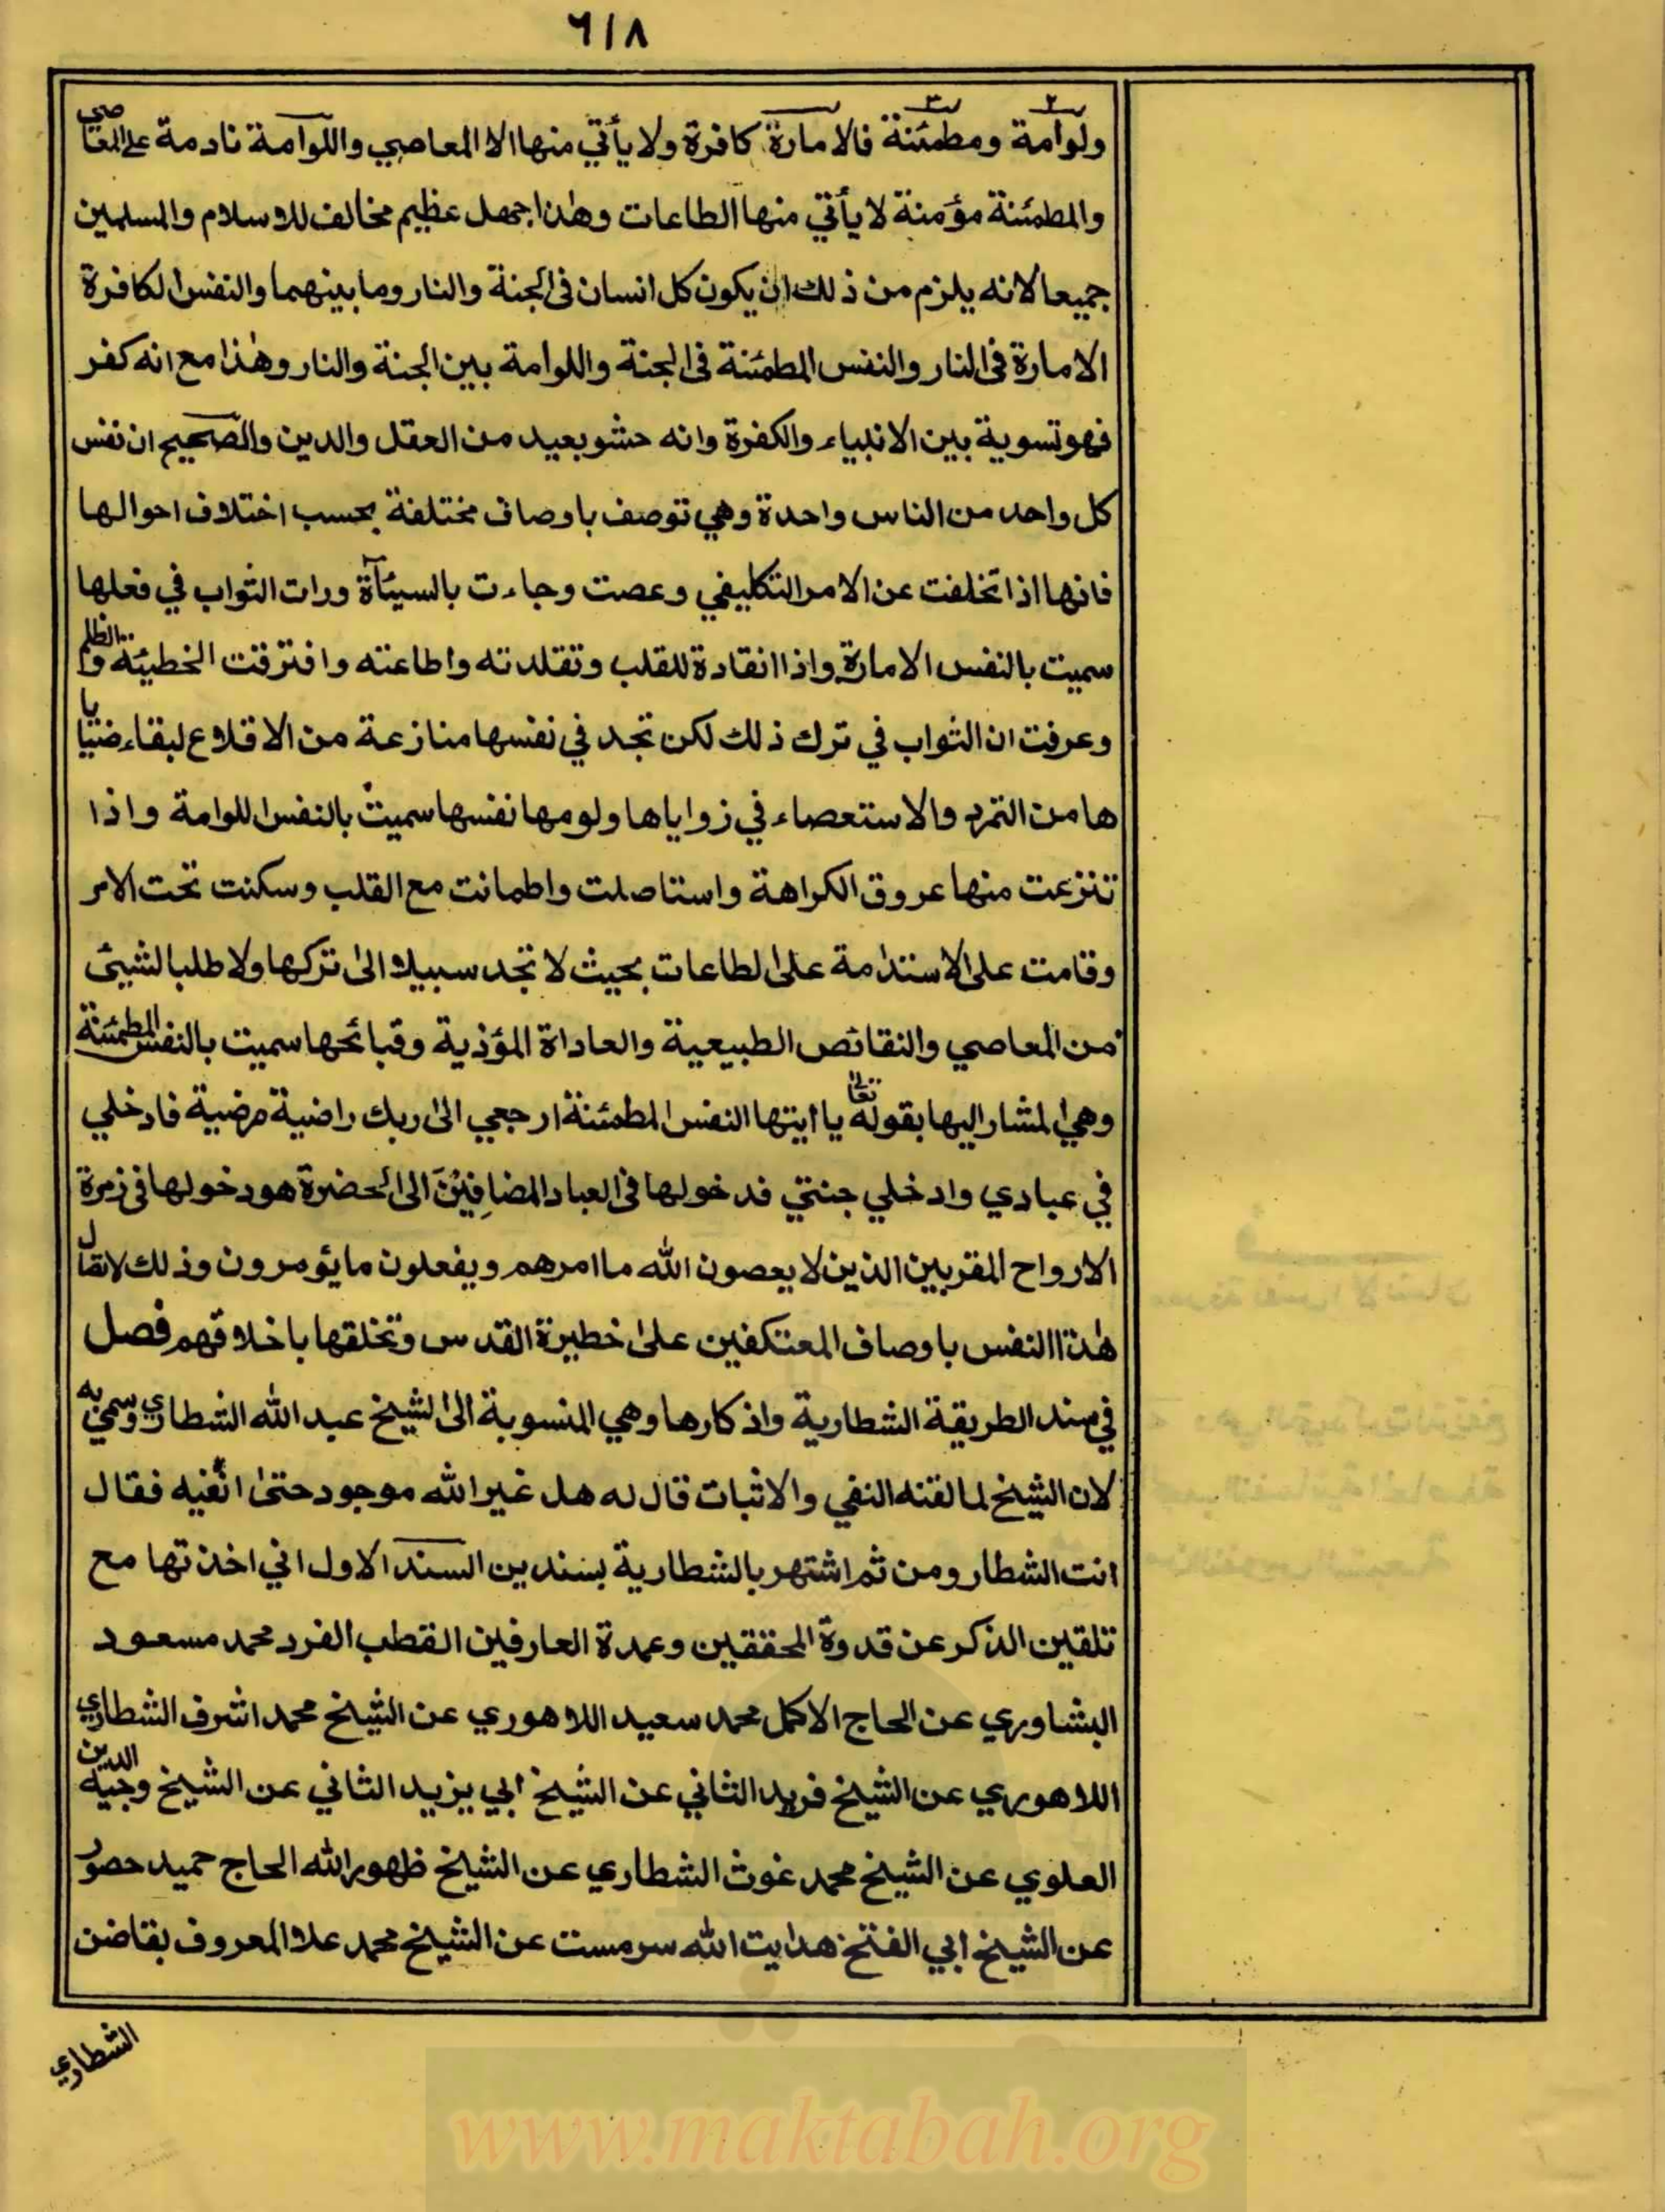 ٦١٨
ولوامة ومطمئنة فالامارة كافرة ولا يأتي منها الا المعاصي واللوامة نادمة على المعاصي
والمطمئنة مؤمنة لا يأتي منها الطاعات وهذا جهل عظيم مخالف للاسلام والمسلمين
جميعا لانه يلزم من ذلك ان يكون كل انسان في الجنة والنار وما بينهما والنفس الكافرة
الامارة في النار والنفس المطمئنة في الجنة واللوامة بين الجنة والنار وهذا مع انه كفر
فهو تسوية بين الانبياء والكفرة وانه حشو بعيد من العقل والدين والصحيح ان نفس
كل واحد من الناس واحدة وهي توصف باوصاف مختلفة بحسب اختلاف احوالها
فانها اذا تخلفت عن الامر التكليفي وعصت وجاءت بالسيئآة ورات الثواب في فعلها
سميت بالنفس الامارة واذا انقادة للقلب وتقلدته واطاعته وافترقت الخطيئة والظلم
وعرفت ان الثواب في ترك ذلك لكن تجد في نفسها منازعة من الاقلاع لبقاء خبايا
ها من التمرد والاستعصاء في زواياها ولومها نفسها سميت بالنفس اللوامة واذا
تنزعت منها عروق الكراهة واستاصلت واطمانت مع القلب وسكنت تحت الامر
وقامت على الاستدامة على الطاعات بحيث لا تجد سبيلا الى تركها ولا طلبا لشيئ
من المعاصي والنقائص الطبيعية والعاداة المؤذية وقبائحها سميت بالنفس المطمئنة
وهي المشار اليها بقوله تعالى يا ايتها النفس المطمئنة ارجعي الى ربك راضية مرضية فادخلي
في عبادي وادخلي جنتي فدخولها في العباد المضافين الى الحضرة هو دخولها في زمرة
الارواح المقربين الذين لا يعصون الله ما امرهم ويفعلون ما يؤمرون وذلك لاتقال
هذا النفس باوصاف المعتكفين على خطيرة القدس وتخلقها باخلاقهم فصل
في سند الطريقة الشطارية واذكارها وهي المنسوبة الى الشيخ عبد الله الشطاري وسمي به
لان الشيخ لما لقنه النفي والاثبات قال له هل غير الله موجود حتى انفيه فقال
انت الشطار ومن ثم اشتهر بالشطارية بسندين السند الاول اني اخذتها مع
تلقين الذكر عن قدوة المحققين وعمدة العارفين القطب الفرد محمد مسعود
البشاوري عن الحاج الاكمل محمد سعيد اللاهوري عن الشيخ محمد اشرف الشطاري
اللاهوري عن الشيخ فريد الثاني عن الشيخ ابي يزيد الثاني عن الشيخ وجيه الدين
العلوي عن الشيخ محمد غوث الشطاري عن الشيخ ظهور الله الحاج حميد حصور
عن الشيخ ابي الفتح هدايت الله سرمست عن الشيخ محمد علا المعروف بقاضن
الشطاري
www.maktabah.org